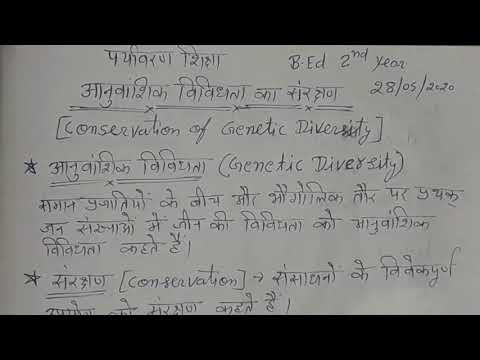 पर्यावरण शिक्षा B.Ed 2nd Year
आनुवांशिक विविधता का संरक्षण 28/05/2020
[Conservation of Genetic Diversity]
★ आनुवांशिक विविधता (Genetic Diversity)
समान प्रजातियों के बीच और भौगोलिक तौर पर पृथक्
जन संख्याओं में जीन की विविधता को आनुवांशिक
विविधता कहते हैं।
★ संरक्षण [Conservation] → संसाधनों के विवेकपूर्ण
उपयोग को संरक्षण कहते हैं।